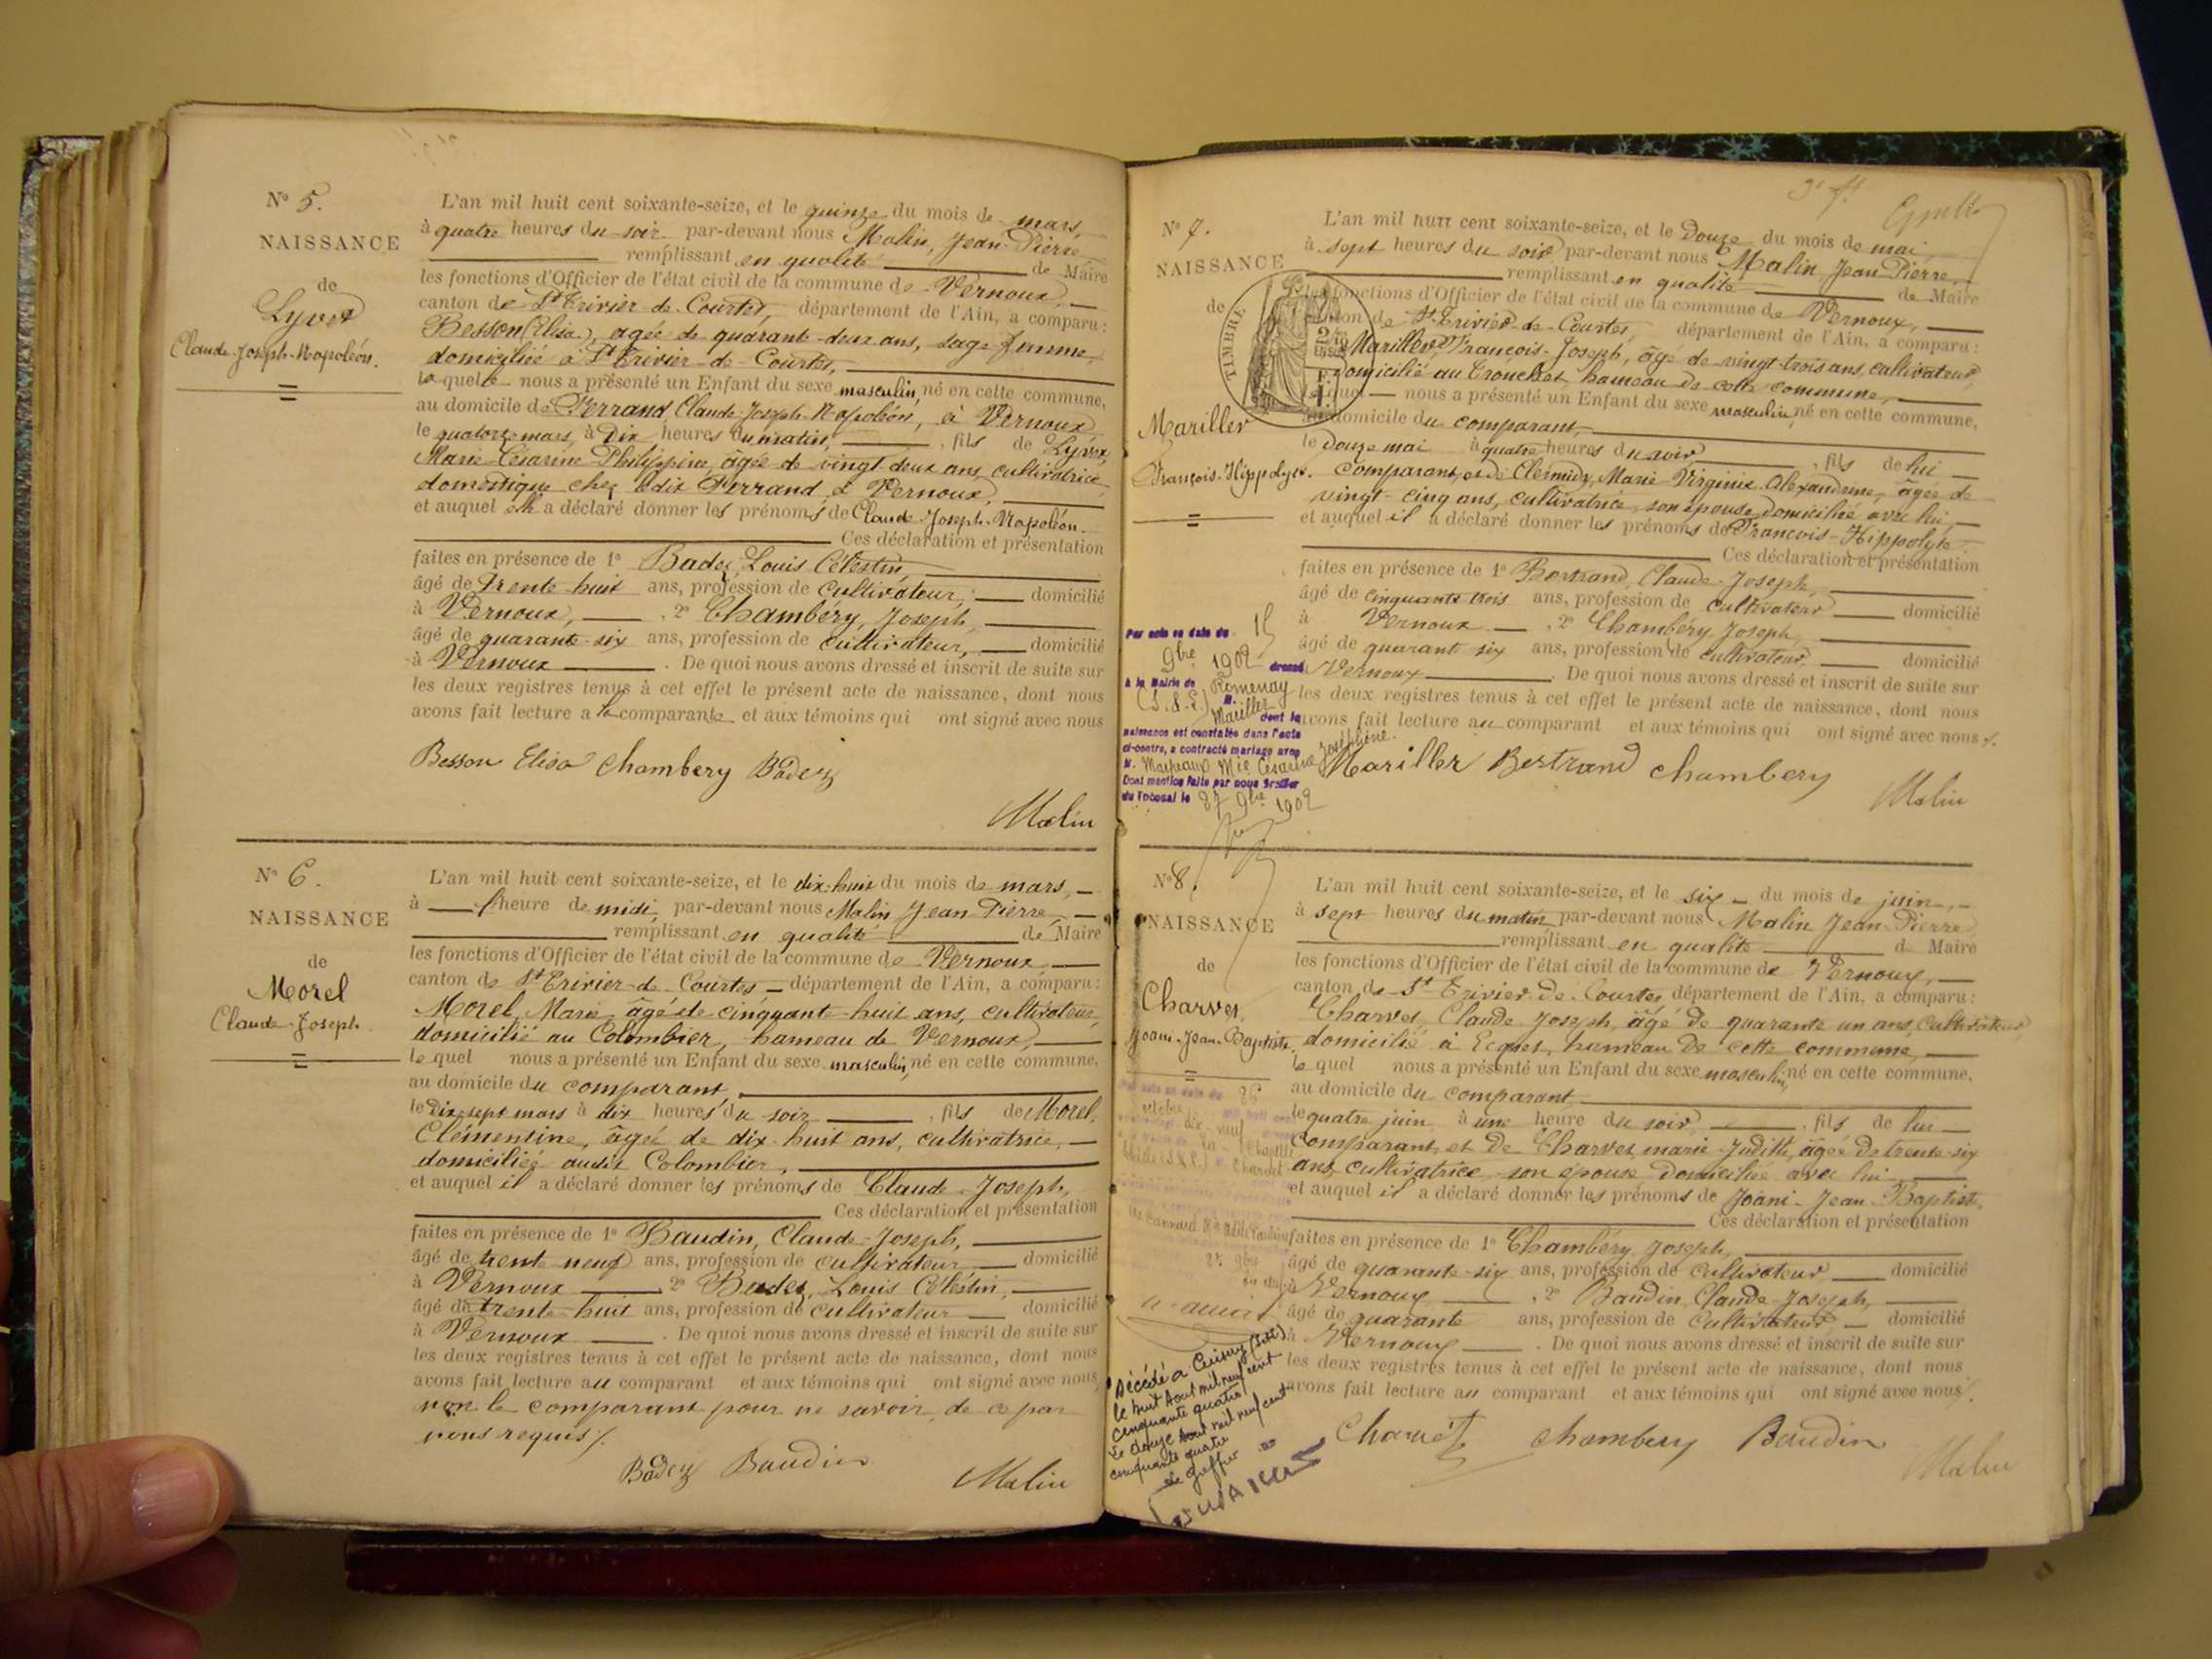 N° 5.
NAISSANCE
de
Lyvet
Claude-Joseph-Napoléon.
L'an mil huit cent soixante-seize, et le quinze du mois de mars,
à quatre heures du soir par-devant nous Malin, Jean Pierre
remplissant en qualité de Maire
les fonctions d'Officier de l'état civil de la commune de Vernoux,
canton de St Trivier de Courtes, département de l'Ain, a comparu :
Besson (Elisa), agée de quarant-deux ans, sage femme,
domiciliée à St Trivier-de-Courtes,
laquelle nous a présenté un Enfant du sexe masculin, né en cette commune,
au domicile de Ferrand Claude-Joseph-Napoléon, à Vernoux
le quatorze mars, à Dix heures du matin, , fils de Lyvet,
Marie-Césarine Philippine, âgée de vingt-deux ans, cultivatrice,
domestique chez ledit Ferrand à Vernoux,
et auquel elle a déclaré donner les prénoms de Claude-Joseph-Napoléon.
Ces déclaration et présentation
faites en présence de 1° Badez, Louis Célestin,
âgé de Trente-huit ans, profession de cultivateur, domicilié
à Vernoux, , 2° Chambéry, Joseph,
âgé de quarante-six ans, profession de cultivateur, domicilié
à Vernoux . De quoi nous avons dressé et inscrit de suite sur
les deux registres tenus à cet effet le présent acte de naissance, dont nous
avons fait lecture a la comparante et aux témoins qui ont signé avec nous
Besson Elisa Chambery Badez
Malin
N° 6.
NAISSANCE
de
Morel
Claude-Joseph.
L'an mil huit cent soixante-seize, et le dix-huit du mois de mars,
à l'heure de midi, par-devant nous Malin Jean Pierre,
remplissant en qualité de Maire
les fonctions d'Officier de l'état civil de la commune de Vernoux
canton de St Trivier-de-Courtes département de l'Ain, a comparu :
Morel, Marie âgé de cinquante-huit ans, cultivateur,
domicilié au Colombier, hameau de Vernoux,
le quel nous a présenté un Enfant du sexe masculin, né en cette commune,
au domicile du comparant,
le Dix-sept mars à dix heures du soir , fils de Morel,
Clémentine, âgée de dix-huit ans, cultivatrice,
domiciliée audit Colombier,
et auquel il a déclaré donner les prénoms de Claude-Joseph,
Ces déclaration et présentation
faites en présence de 1° Baudin, Claude-Joseph,
âgé de trente neuf ans, profession de cultivateur domicilié
à Vernoux 2° Badez, Louis Célestin,
âgé de trente-huit ans, profession de cultivateur domicilié
à Vernoux . De quoi nous avons dressé et inscrit de suite sur
les deux registres tenus à cet effet le présent acte de naissance, dont nous
avons fait lecture au comparant et aux témoins qui ont signé avec nous,
non le comparant pour ne savoir, de ce par
nous requis /.
Badez Baudin
Malin
3e ff.
N° 7.
NAISSANCE
de
TIMBRE
Mariller
François-Hippolyte.
L'an mil huit cent soixante-seize, et le Douze du mois de mai
à sept heures du soir par-devant nous Malin Jean Pierre,
remplissant en qualité de Maire
les fonctions d'Officier de l'état civil de la commune de Vernoux,
canton de St Trivier-de-Courtes, département de l'Ain, a comparu :
Mariller François-Joseph, âgé de vingt-trois ans, cultivateur,
domicilié au Cronchet, hameau de cette commune,
lequel nous a présenté un Enfant du sexe masculin, né en cette commune,
au domicile du comparant,
le Douze mai à quatre heures du soir , fils de lui
comparant, et de Clermidy, Marie-Virginie Alexandrine, âgée de
vingt-cinq ans, cultivatrice, son épouse, domiciliée avec lui,
et auquel il a déclaré donner les prénoms de François-Hippolyte.
Ces déclaration et présentation
faites en présence de 1° Bertrand, Claude-Joseph,
âgé de cinquante trois ans, profession de cultivateur domicilié
à Vernoux , 2° Chambéry, Joseph,
âgé de quarant six ans, profession de cultivateur, domicilié
Vernoux . De quoi nous avons dressé et inscrit de suite sur
les deux registres tenus à cet effet le présent acte de naissance, dont nous
avons fait lecture au comparant et aux témoins qui ont signé avec nous /.
Mariller Bertrand Chambery
Malin
Par acte en date du 15
9bre 1902 dressé
à la Mairie de Romenay
(S.&L.) M.
Mariller dont la
naissance est constatée dans l'acte
ci-contre, a contracté mariage avec
M. Mie Césarine Joséphine.
Dont mention faite par nous Greffier
du Tribunal le 27 9bre 1902
N° 8.
NAISSANCE
de
Charvet
Joani-Jean-Baptiste.
L'an mil huit cent soixante-seize, et le six du mois de juin,
à sept heures du matin par-devant nous Malin Jean-Pierre
remplissant en qualité de Maire
les fonctions d'Officier de l'état civil de la commune de Vernoux,
canton de St Trivier-de-Courtes département de l'Ain, a comparu :
Charvet, Claude Joseph, âgé de quarante un ans, cultivateur
domicilié à hameau de cette commune,
le quel nous a présenté un Enfant du sexe masculin, né en cette commune,
au domicile du comparant
le quatre juin à une heure du soir , fils de lui
comparant, et de Charvet marie-Judith, âgée de trente-six
ans, cultivatrice son épouse domiciliée avec lui
et auquel il a déclaré donner les prénoms de Joani-Jean-Baptiste.
Ces déclaration et présentation
faites en présence de 1° Chambéry, Joseph,
âgé de quarante-six ans, profession de cultivateur domicilié
à Vernoux , 2° Baudin, Claude-Joseph,
âgé de quarante ans, profession de cultivateur domicilié
à Vernoux . De quoi nous avons dressé et inscrit de suite sur
les deux registres tenus à cet effet le présent acte de naissance, dont nous
avons fait lecture au comparant et aux témoins qui ont signé avec nous /.
Charvet Chambery Baudin
Malin
Décédé à Cuisery (S&L)
le huit Aout mil neuf cent
cinquante quatre
Le douze Aout mil neuf cent
cinquante quatre
Le Greffier